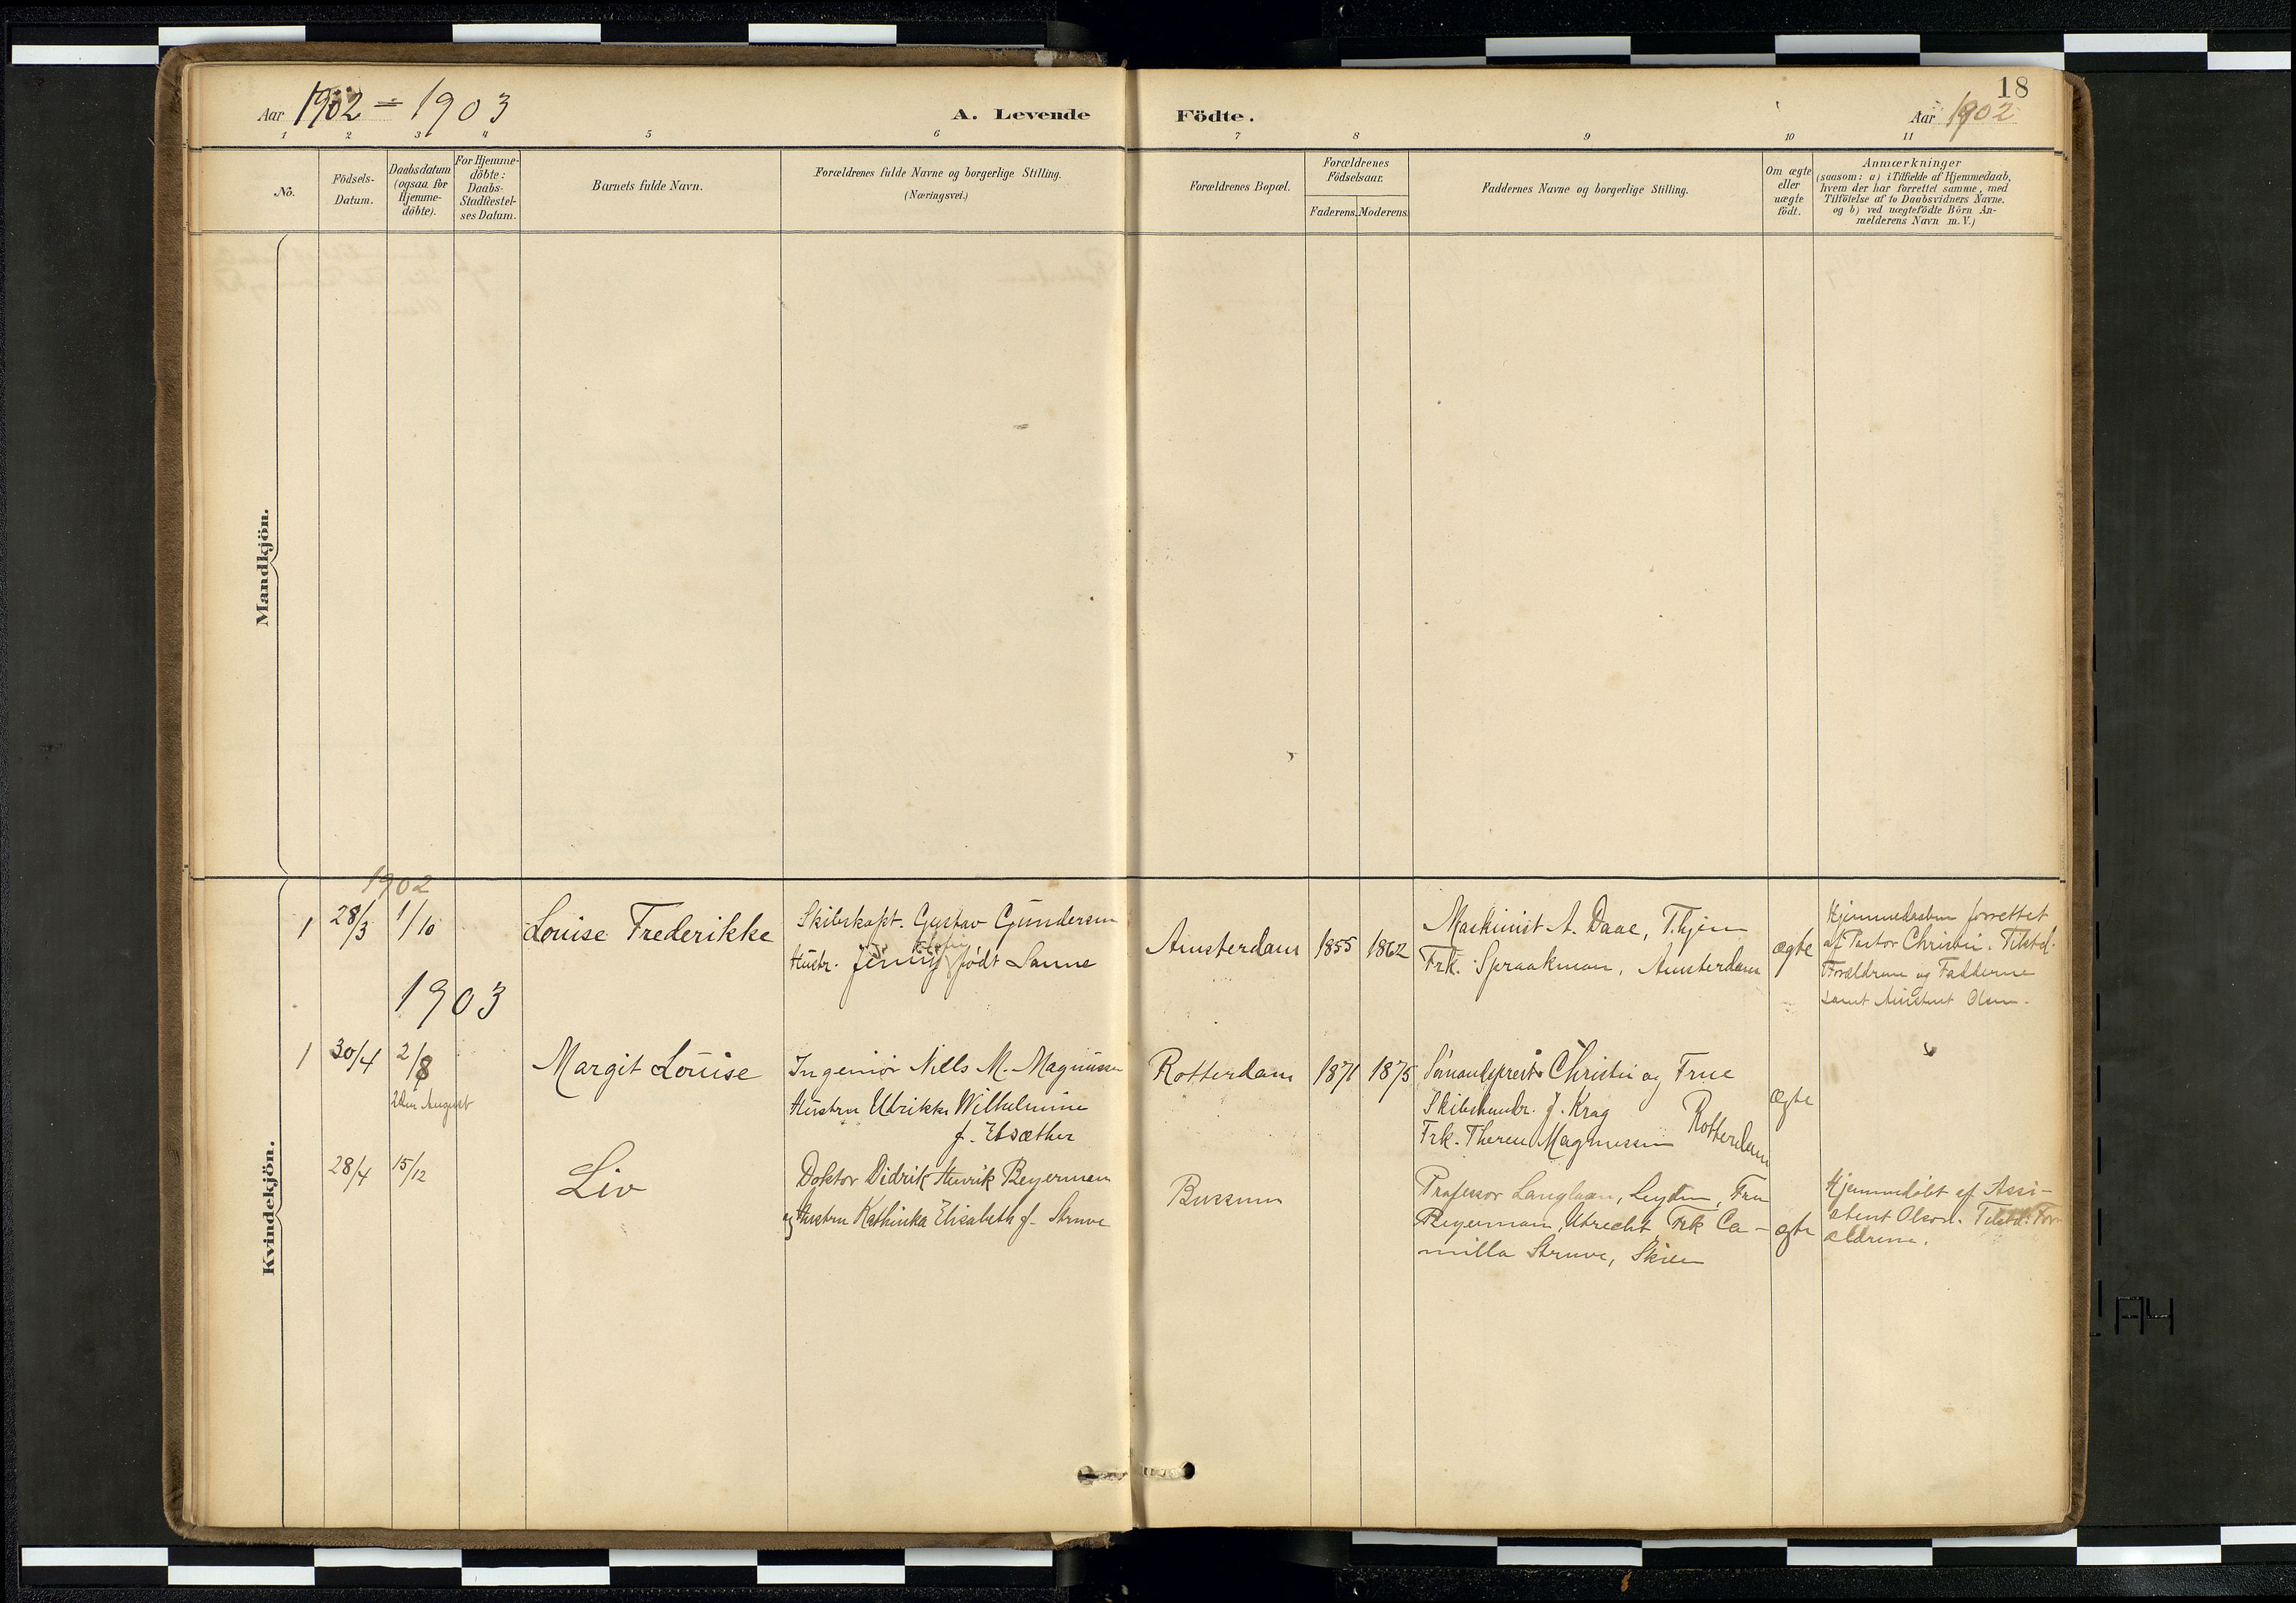 18
Aar 1902 = 1903
A. Levende Födte.
Aar 1902
1 2 3 4 5 6 7 8 9 10 11
No.
Födsels-
Datum.
Daabsdatum
(ogsaa for
Hjemme-
döbte).
For Hjemme-
döbte:
Daabs-
Stadfæstel-
ses Datum.
Barnets fulde Navn.
Forældrenes fulde Navne og borgerlige Stilling.
(Næringsvei.)
Forældrenes Bopæl.
Forældrenes
Födselsaar.
Faderens. Moderens.
Faddernes Navne og borgerlige Stilling.
Om ægte
eller
uægte
födt.
Anmærkninger
(saasom: a) i Tilfælde af Hjemmedaab,
hvem der har forrettet samme, med
Tilföielse af to Daabsvidners Navne.
og b) ved uægtefödte Börn An-
melderens Navn m. V.)
Mandkjön.
Kvindekjön.
1902
1 28/3 1/10
Louise Frederikke
Skibskapt. Gustav Gundersen
Hustr. Jenny født Sanne
Amsterdam
1855 1862
Maskinist A. Daae, T.hjem
Frk. Spraakman, Amsterdam
ægte
Hjemmedaaben forrettet
af Pastor Christie. Tilsted.
Forældrene og Fadderne
samt Assistent Olsen.
1903
1 30/4 2/8
2den August
Margit Louise
Ingeniør Niels M. Magnussen
Hustru Ulrikke Wilhelmine
f. Elsæther
Rotterdam
1871 1875
Sømandsprest Christie og Frue
Skibshandr. J. Krag
Frk. Therese Magnussen
Rotterdam
ægte
28/4 15/12
Liv
Doktor Didrik Henrik Beyerman
og Hustru Kathinka Elisabeth f. Struve
Bussum
Professor Langlaan, Leyden, Fru
Beyerman, Utrecht, Frk Ca-
milla Struve, Skien
ægte
Hjemmedøbt af Assi-
stent Olson. Tilsted: For-
ældrene.